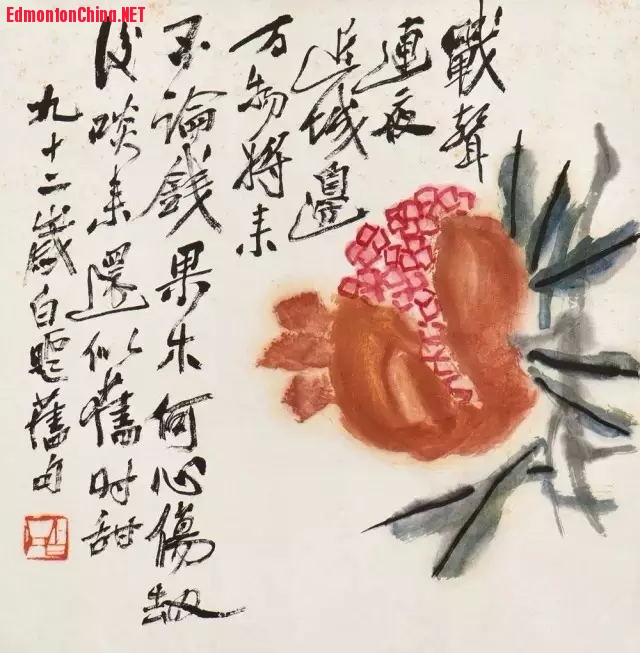 EdmontonChina.NET
戰聲
連夜
近城邊
万物將来
不論錢果木何心傷劫
後啖来還似舊时甜
九十二歲白並舊句